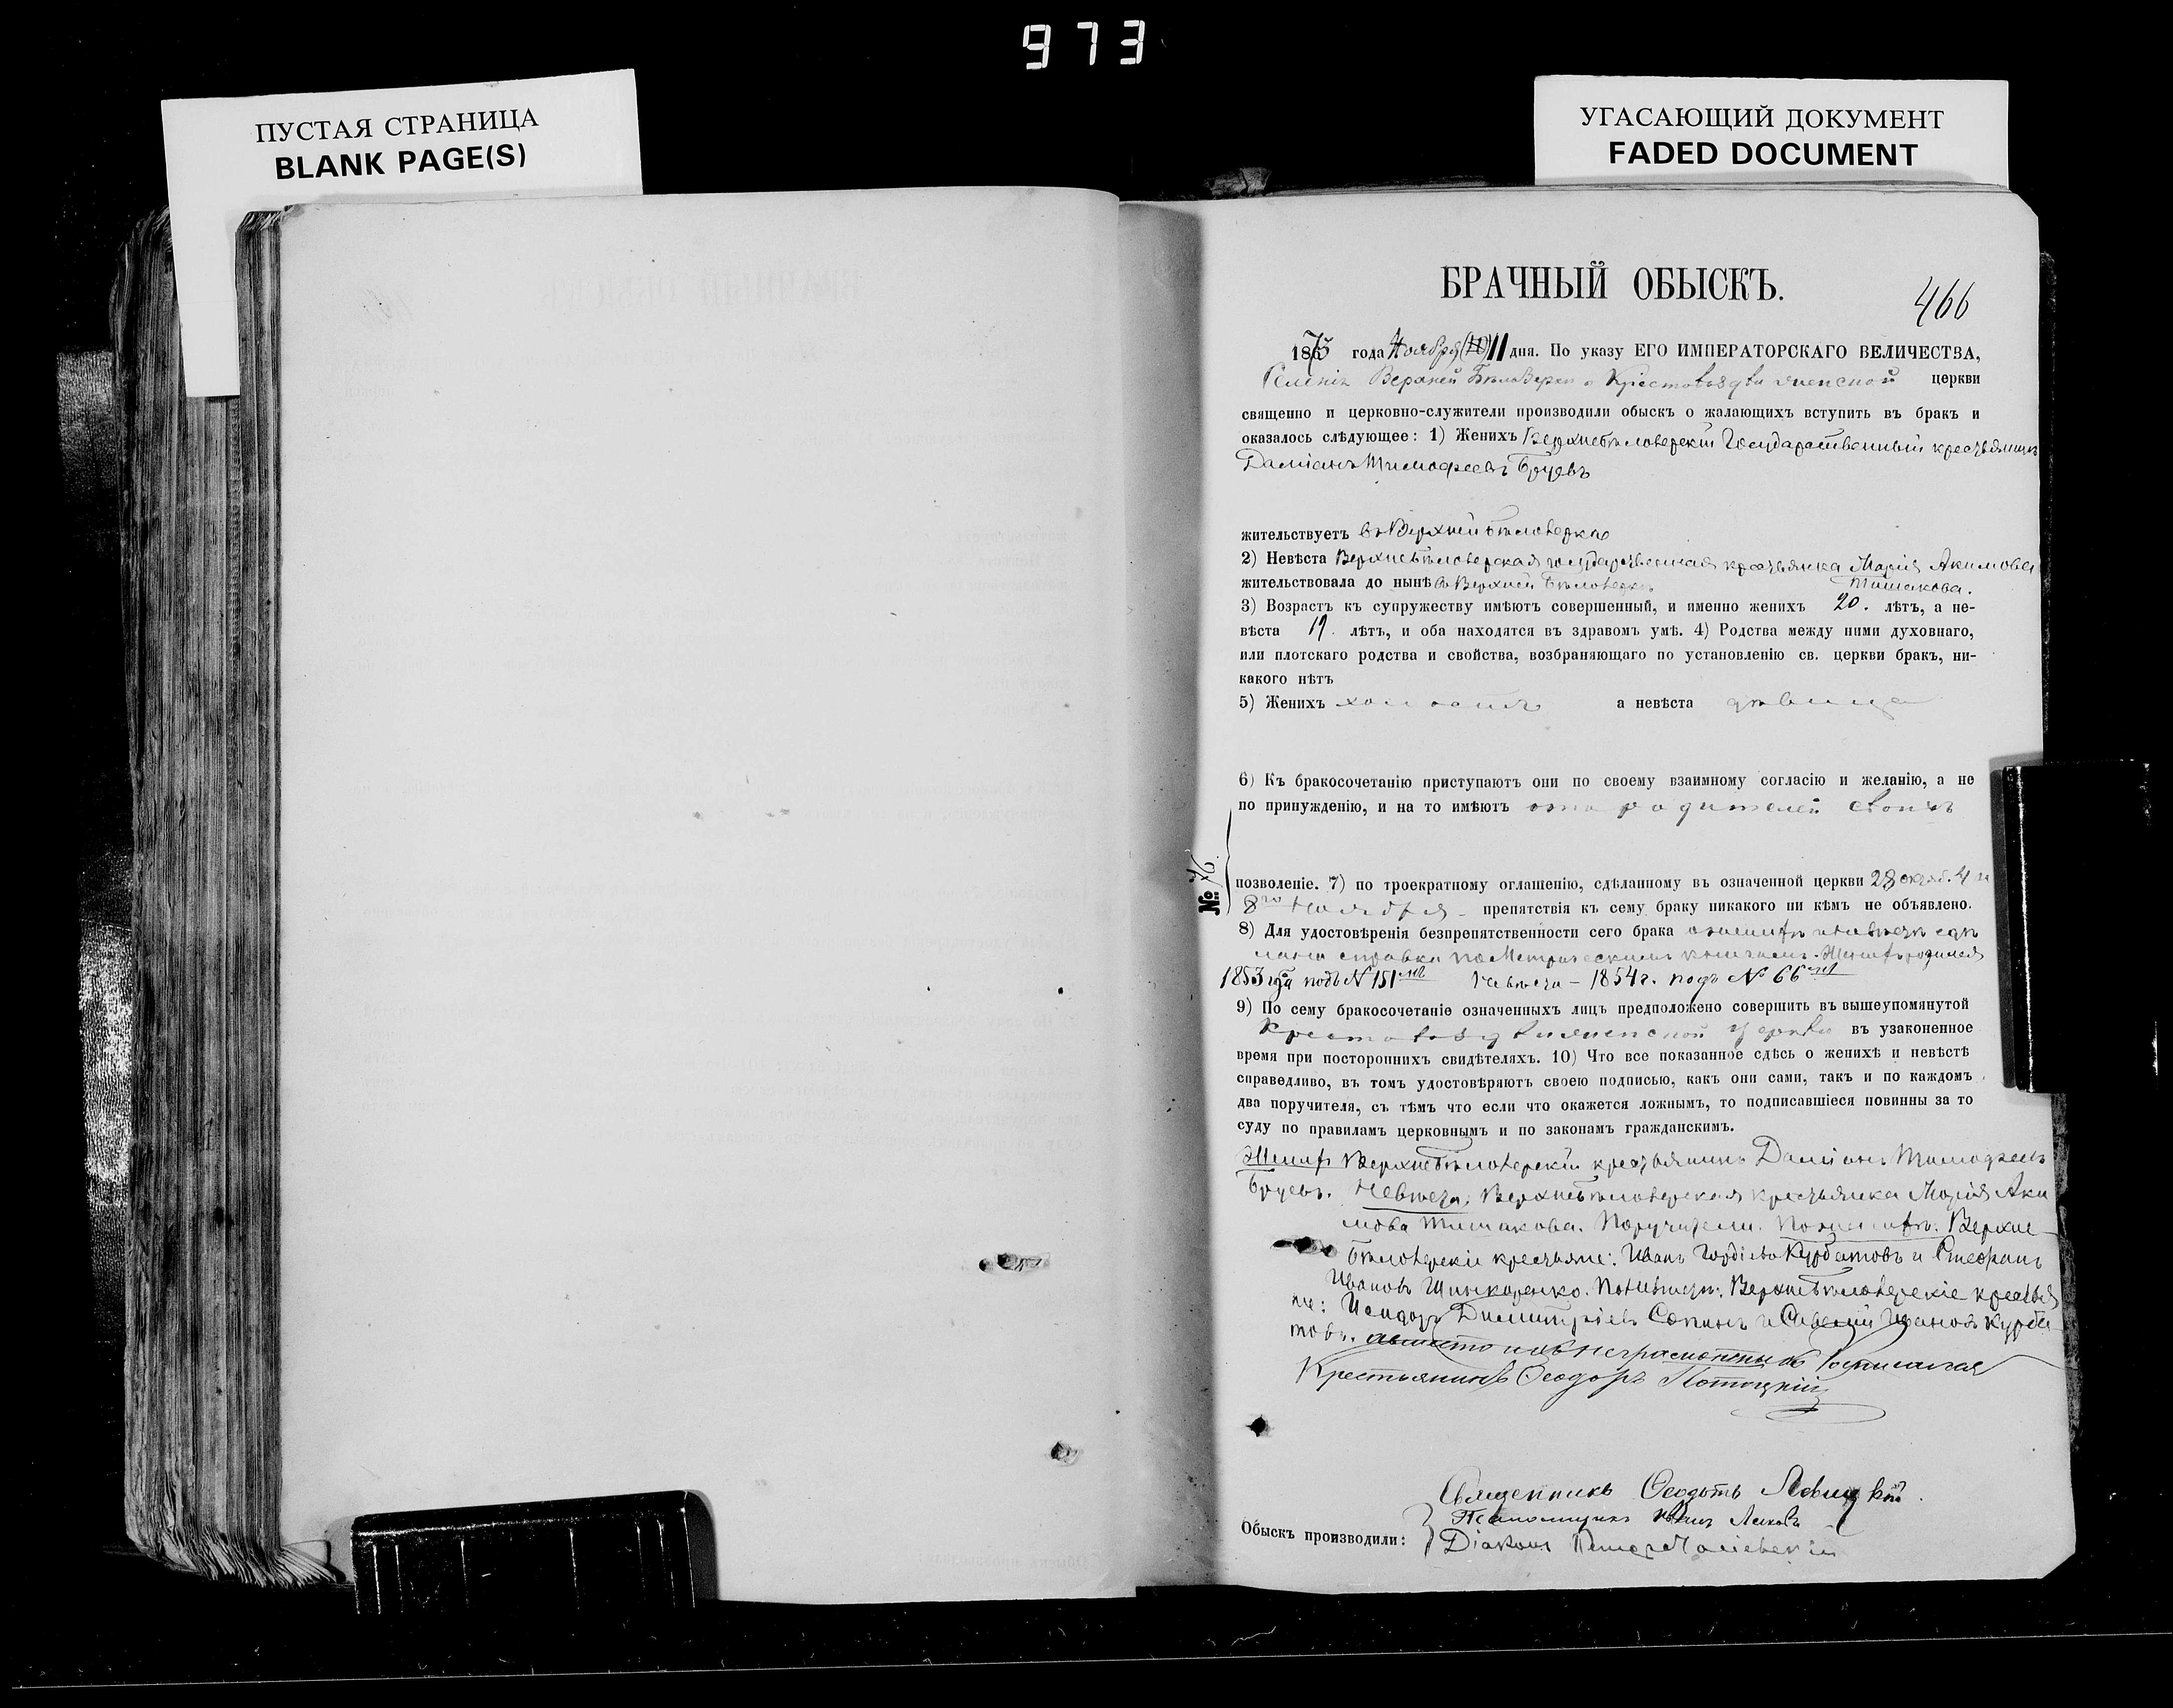 973
ПУСТАЯ СТРАНИЦА
BLANK PAGE(S)
УГАСАЮЩИЙ ДОКУМЕНТ
FADED DOCUMENT
БРАЧНЫЙ ОБЫСКЪ.
466
1875 года Ноября (10) 11 дня. По указу ЕГО ИМПЕРАТОРСКАГО ВЕЛИЧЕСТВА,
Селенія Верхней Крестовоздвиженской церкви
священно и церковно-служители производили обыскъ о жалающихъ вступить въ бракъ и
оказалось слѣдующее: 1) Женихъ Верхнебѣлозерскій Государственный крестьянинъ
Даміанъ Тимофеевъ Бруевъ
жительствуетъ въ Верхней Бѣлозеркѣ
2) Невѣста Верхнебѣлозерская государственная крестьянка Марія Акимова
жительствовала до нынѣ въ Верхней Бѣлозеркѣ Тишакова.
3) Возрастъ къ супружеству имѣютъ совершенный, и именно женихъ 20. лѣтъ, а не-
вѣста 19. лѣтъ, и оба находятся въ здравомъ умѣ. 4) Родства между ними духовнаго,
или плотскаго родства и свойства, возбраняющаго по установленію св. церкви бракъ, ни-
какого нѣтъ
5) Женихъ холостъ а невѣста дѣвица
6) Къ бракосочетанію приступаютъ они по своему взаимному согласію и желанію, а не
по принужденію, и на то имѣютъ отъ родителей своихъ
№ 76.
позволеніе. 7) по троекратному оглашенію, сдѣланному въ означенной церкви 28 октяб. 4 и
8го Ноября препятствія къ сему браку никакого ни кѣмъ не объявлено.
8) Для удостовѣренія безпрепятственности сего брака о женихѣ и невѣстѣ сдѣ
лана справка по Метрическимъ книгамъ. Женихъ родился
1853 года подъ № 151мъ Невѣста – 1854 г. подъ № 66мъ
9) По сему бракосочетаніе означенныхъ лицъ предположено совершить въ вышеупомянутой
Крестовоздвиженской церкви въ узаконенное
время при постороннихъ свидѣтеляхъ. 10) Что все показанное сдѣсь о женихѣ и невѣстѣ
справедливо, въ томъ удостовѣряютъ своею подписью, какъ они сами, такъ и по каждомъ
два поручителя, съ тѣмъ что если что окажется ложнымъ, то подписавшіеся повинны за то
суду по правиламъ церковнымъ и по законамъ гражданскимъ.
Женихъ Верхнебѣлозерскій крестьянинъ Даміанъ Тимофеевъ
Бруевъ. Невѣста: Верхнебѣлозерская крестьянка Марія Аки
мова Тишакова. Поручители: По женихѣ: Верхне-
бѣлозерскіе крестьяне: Иванъ Гордіевъ Курбатовъ и Стефанъ
Ивановъ Шинкаренко. По невѣстѣ: Верхнебѣлозерскіе крестья
не: Исидоръ Димитріевъ и Савелій Ивановъ Курба
товъ. а вместо ихъ неграмотныхъ Росписался
Крестьянинъ Феодоръ Потоцкій
Священникъ Феодотъ Левицкій.
Псаломщикъ Иванъ
Обыскъ производили:
Діаконъ